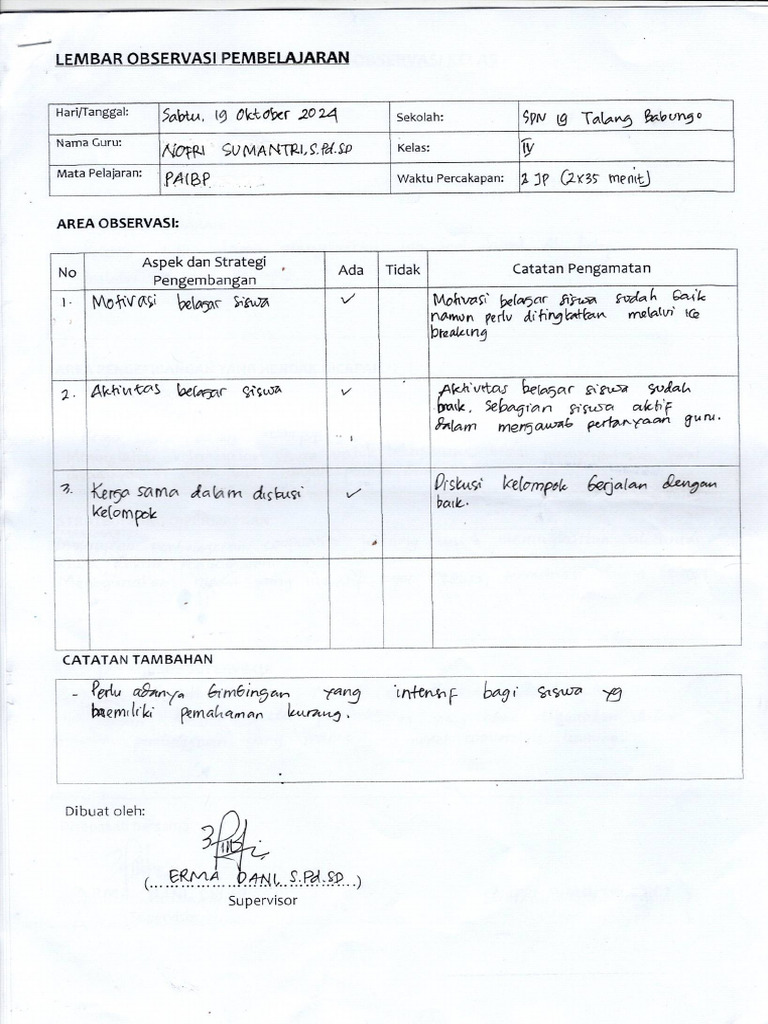 LEMBAR OBSERVASI PEMBELAJARAN
Hari/Tanggal: Sabtu, 19 Oktober 2024 Sekolah: SDN 19 Talang Babungo
Nama Guru: NOFRI SUMANTRI, S.Pd.SD Kelas: IV
Mata Pelajaran: PAIBP Waktu Percakapan: 2 JP (2x35 menit)
AREA OBSERVASI:
No Aspek dan Strategi Pengembangan Ada Tidak Catatan Pengamatan
1. Motivasi belajar siswa ✓ Motivasi belajar siswa sudah baik
namun perlu ditingkatkan melalui ice
breaking
2. Aktivitas belajar siswa ✓ Aktivitas belajar siswa sudah
baik, sebagian siswa aktif
dalam menjawab pertanyaan guru.
3. Kerja sama dalam diskusi ✓ Diskusi kelompok berjalan dengan
kelompok baik.
CATATAN TAMBAHAN
- Perlu adanya bimbingan yang intensif bagi siswa yg
memiliki pemahaman kurang.
Dibuat oleh:
(ERMA DANI, S.Pd.SD)
Supervisor